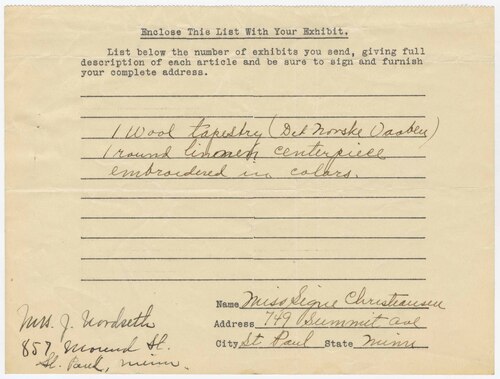 Enclose This List With Your Exhibit.
List below the number of exhibits you send, giving full
description of each article and be sure to sign and furnish
your complete address.
1 Wool tapestry (Det Norske Vaaben)
1 round linnen centerpiece
embroidered in colors.
Name Miss Signe Christiansen
Address 749 Summit Ave
City St. Paul State Minn
Mrs. J. Nordseth
857, Mound St.
St. Paul, Minn.